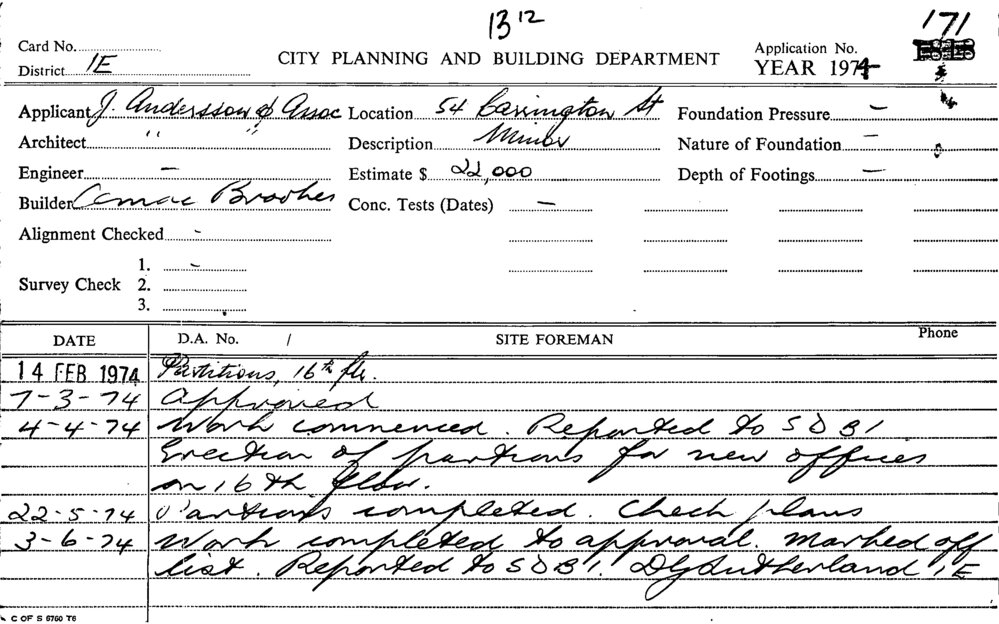 13 12
171
Card No.
District 1E
CITY PLANNING AND BUILDING DEPARTMENT
Application No.
YEAR 1974
Applicant J. Andersson & Assoc Location 54 Carrington St Foundation Pressure –
Architect " " Description Minor Nature of Foundation –
Engineer – Estimate $ 22,000 Depth of Footings –
Builder Brookes Conc. Tests (Dates) –
Alignment Checked -
1. -
Survey Check 2.
3.
DATE D.A. No. / SITE FOREMAN Phone
14 FEB 1974 Partitions, 16th flr.
7-3-74 Approved
4-4-74 Work commenced. Reported to SDBI
Erection of partions for new offices
on 16th floor.
22-5-74 Partions completed. Check plans
3-6-74 Work completed to approval. Marked off
list. Reported to SDBI. DGSutherland 1E
C OF S 6760 T6